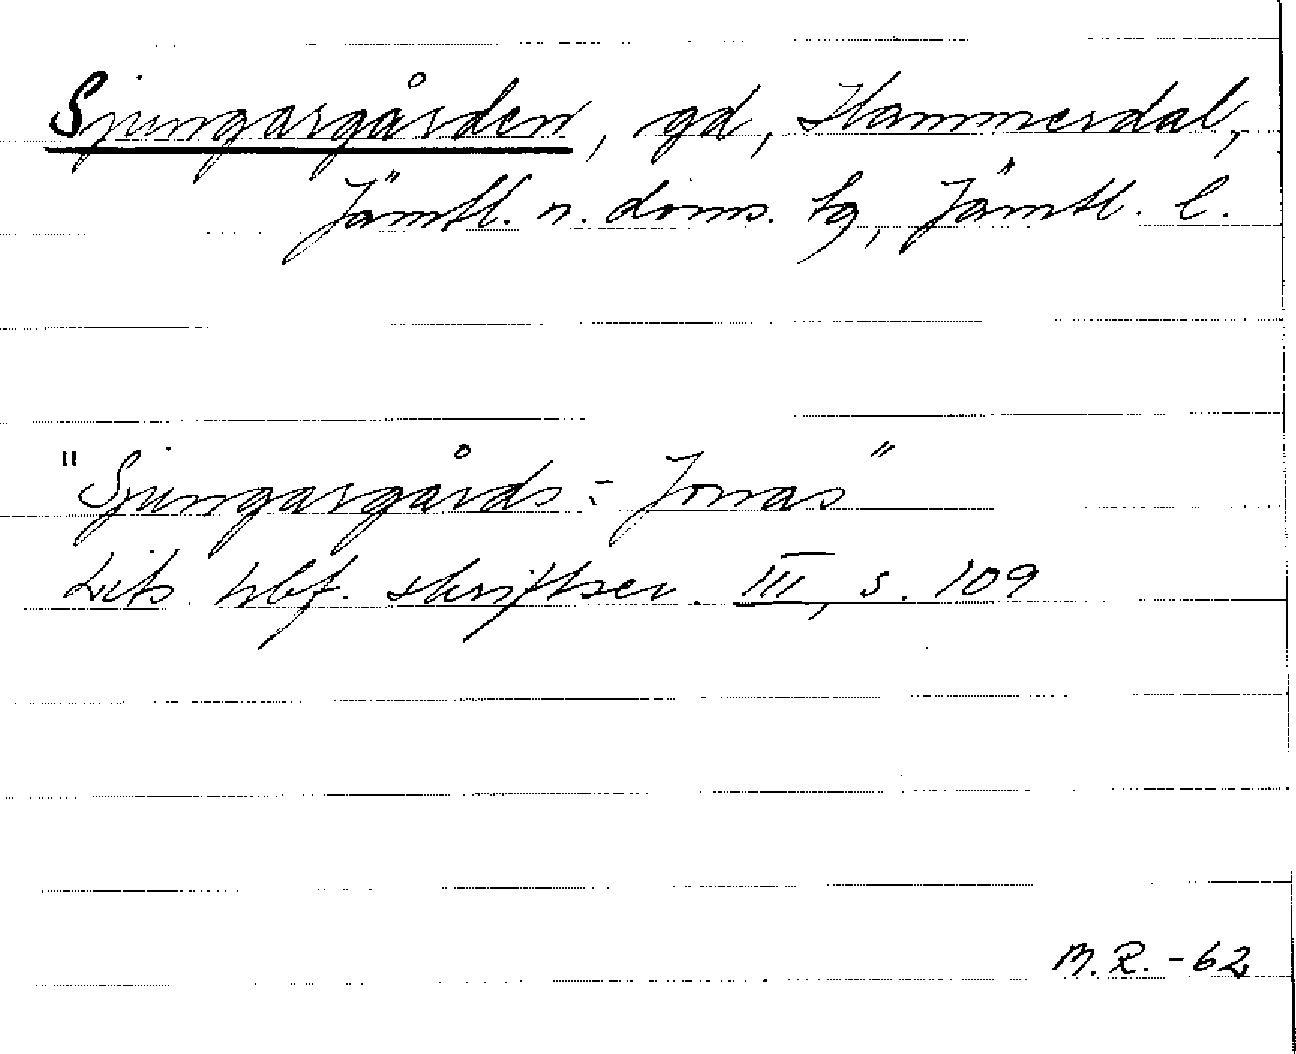 Sjungargården, gd, Hammerdal,
Jämtl. n. doms. tg, Jämtl. l.
"Sjungargårds-Jonas"
Lits hbf. skriftser. III, s. 109
M.R.-62